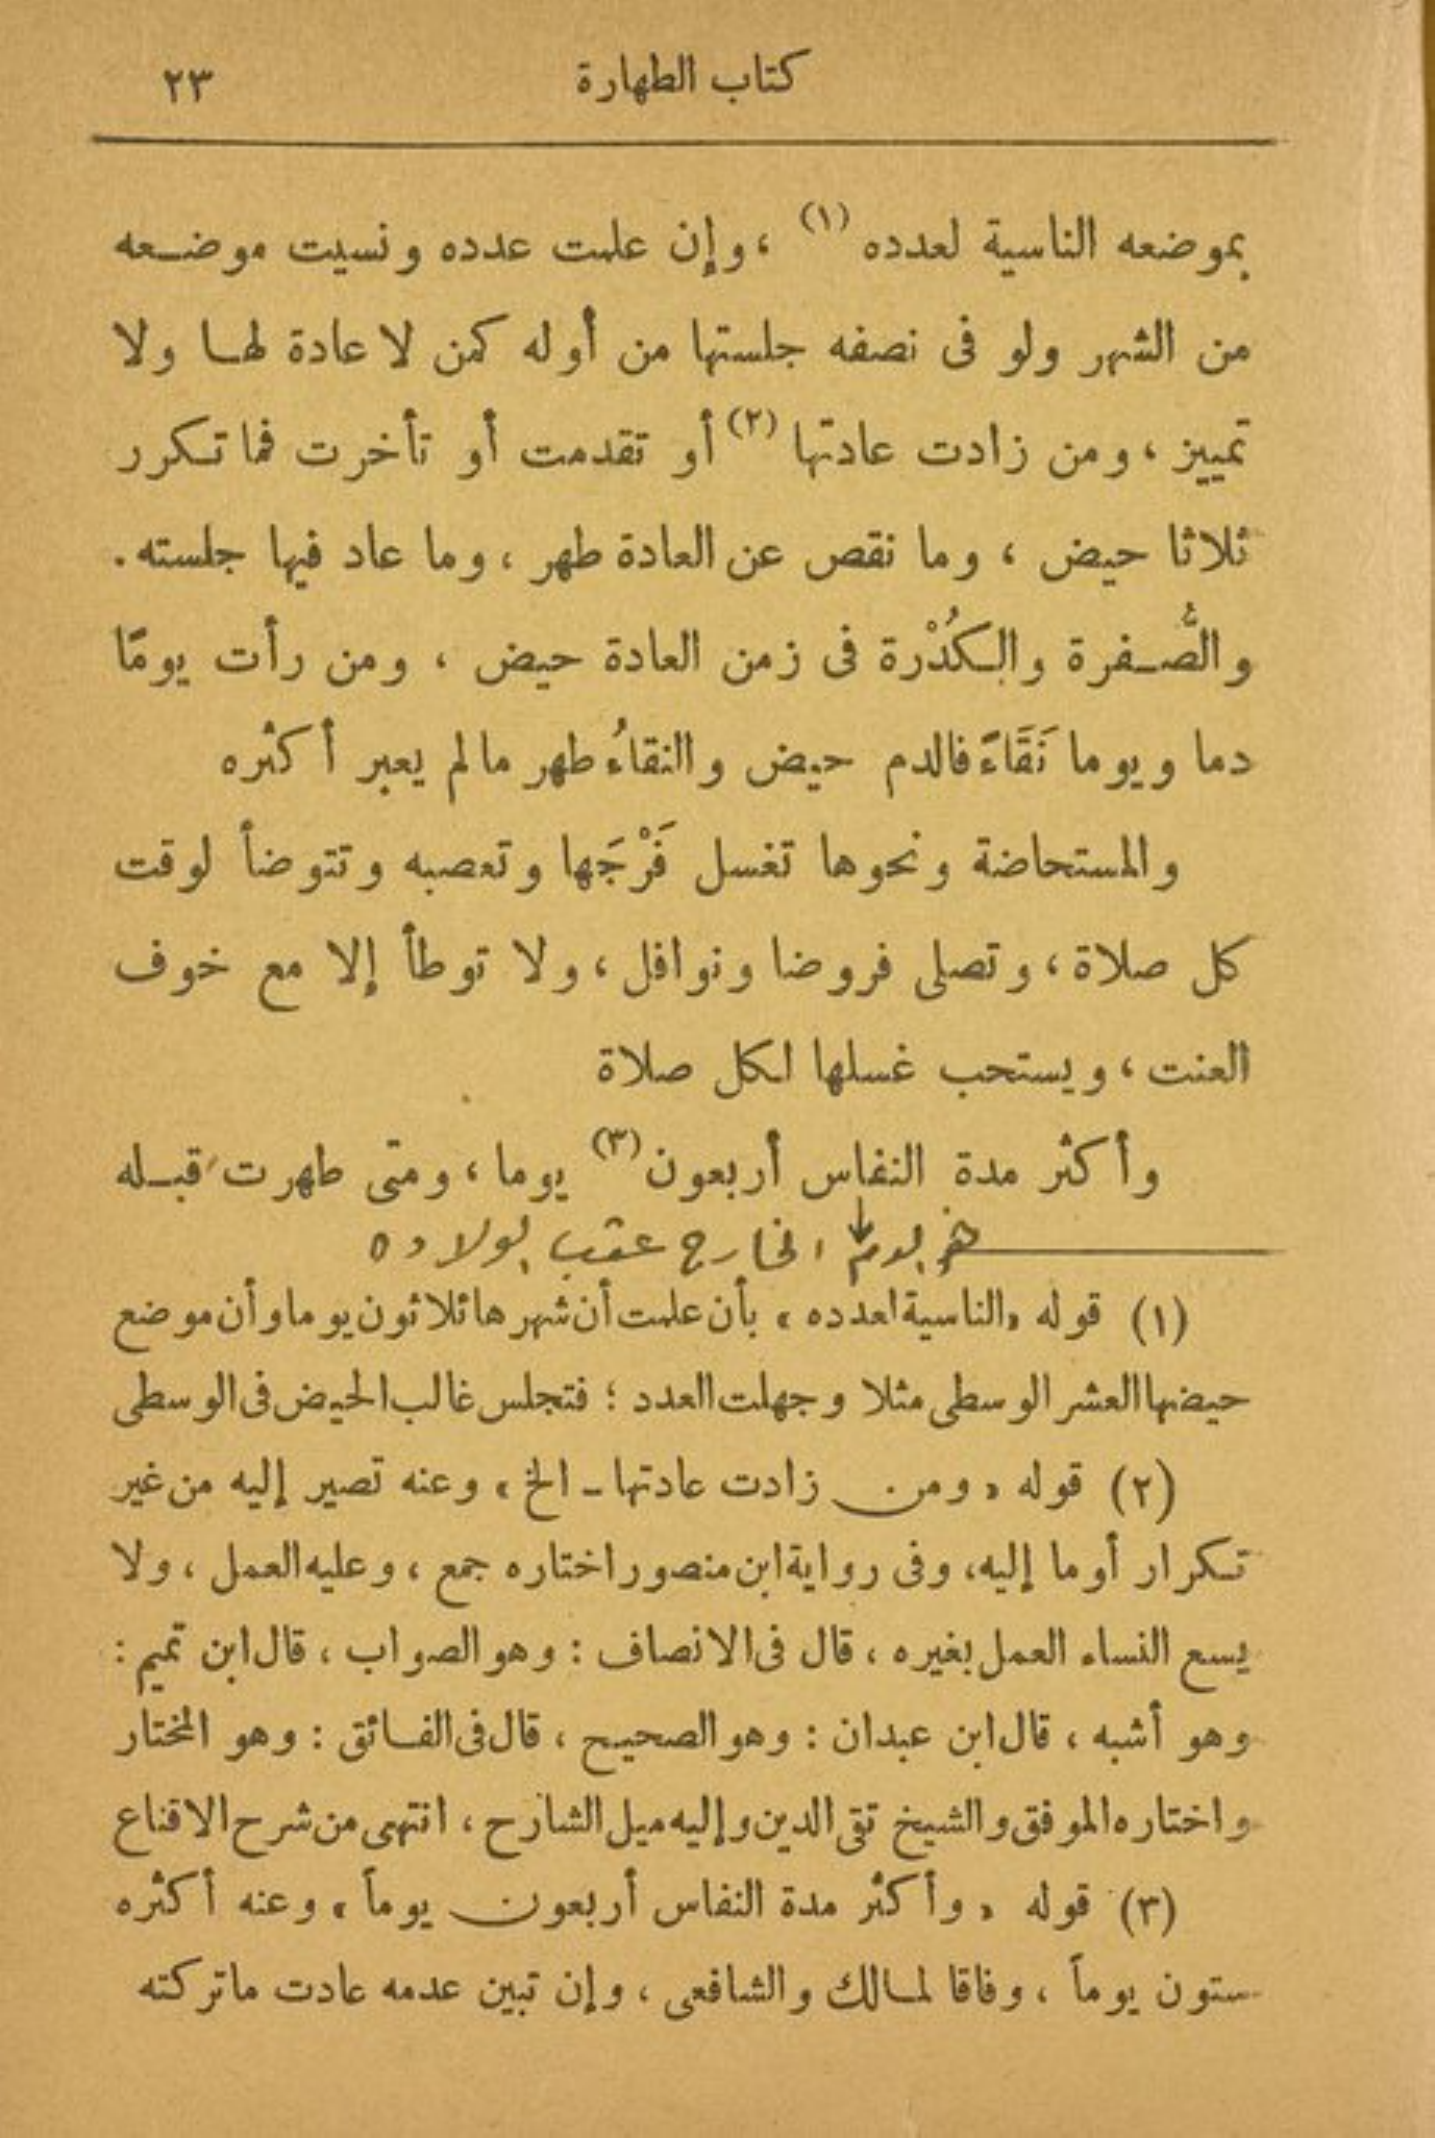 كتاب الطهارة ٢٣
بموضعه الناسية لعدده (١) ، وإن علمت عدده ونسيت موضعه
من الشهر ولو فى نصفه جلستها من أوله كمن لا عادة لها ولا
تمييز ، ومن زادت عادتها (٢) أو تقدمت أو تأخرت فما تكرر
ثلاثا حيض ، وما نقص عن العادة طهر ، وما عاد فيها جلسته .
والصُّفرة والكُدْرة فى زمن العادة حيض ، ومن رأت يومًا
دما ويوما نَقَاءً فالدم حيض والنقاءُ طهر مالم يعبر أكثره
والمستحاضة ونحوها تغسل فَرْجَها وتعصبه وتتوضأ لوقت
كل صلاة ، وتصلى فروضا ونوافل ، ولا توطأ إلا مع خوف
العنت ، ويستحب غسلها لكل صلاة
وأكثر مدة النفاس أربعون (٣) يوما ، ومتى طهرت قبله
الخارج عقب الولاده
(١) قوله «الناسية لعدده» بأن علمت أن شهرها ثلاثون يوما وأن موضع
حيضها العشر الوسطى مثلا وجهلت العدد ؛ فتجلس غالب الحيض فى الوسطى
(٢) قوله «ومن زادت عادتها - الخ» وعنه تصير إليه من غير
تكرار أوما إليه، وفى رواية ابن منصور اختاره جمع ، وعليه العمل ، ولا
يسع النساء العمل بغيره ، قال فى الانصاف : وهو الصواب ، قال ابن تميم :
وهو أشبه ، قال ابن عبدان : وهو الصحيح ، قال فى الفائق : وهو المختار
واختاره الموفق والشيخ تقى الدين وإليه ميل الشارح ، انتهى من شرح الاقناع
(٣) قوله «وأكثر مدة النفاس أربعون يوماً» وعنه أكثره
ستون يوماً ، وفاقا لمالك والشافعى ، وإن تبين عدمه عادت ماتركته